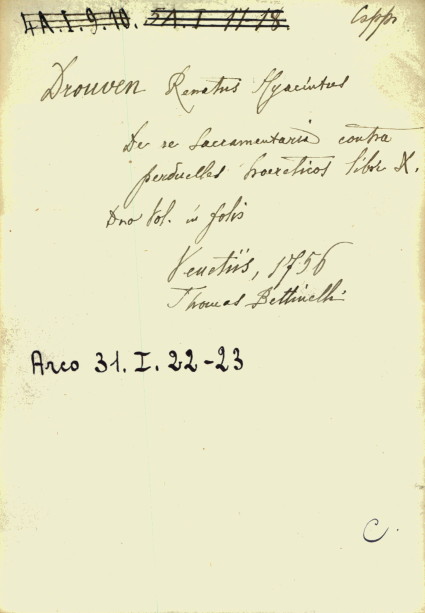 4A.I.9.10. 5A.I 17-18.
Drouven Renatus Hyacintus
De re Sacramentaria contra
perduelles haereticos libr X.
Duo Vol. in folio
Venetiis, 1756
Thomas Bettinelli
Arco 31. I. 22-23
C.